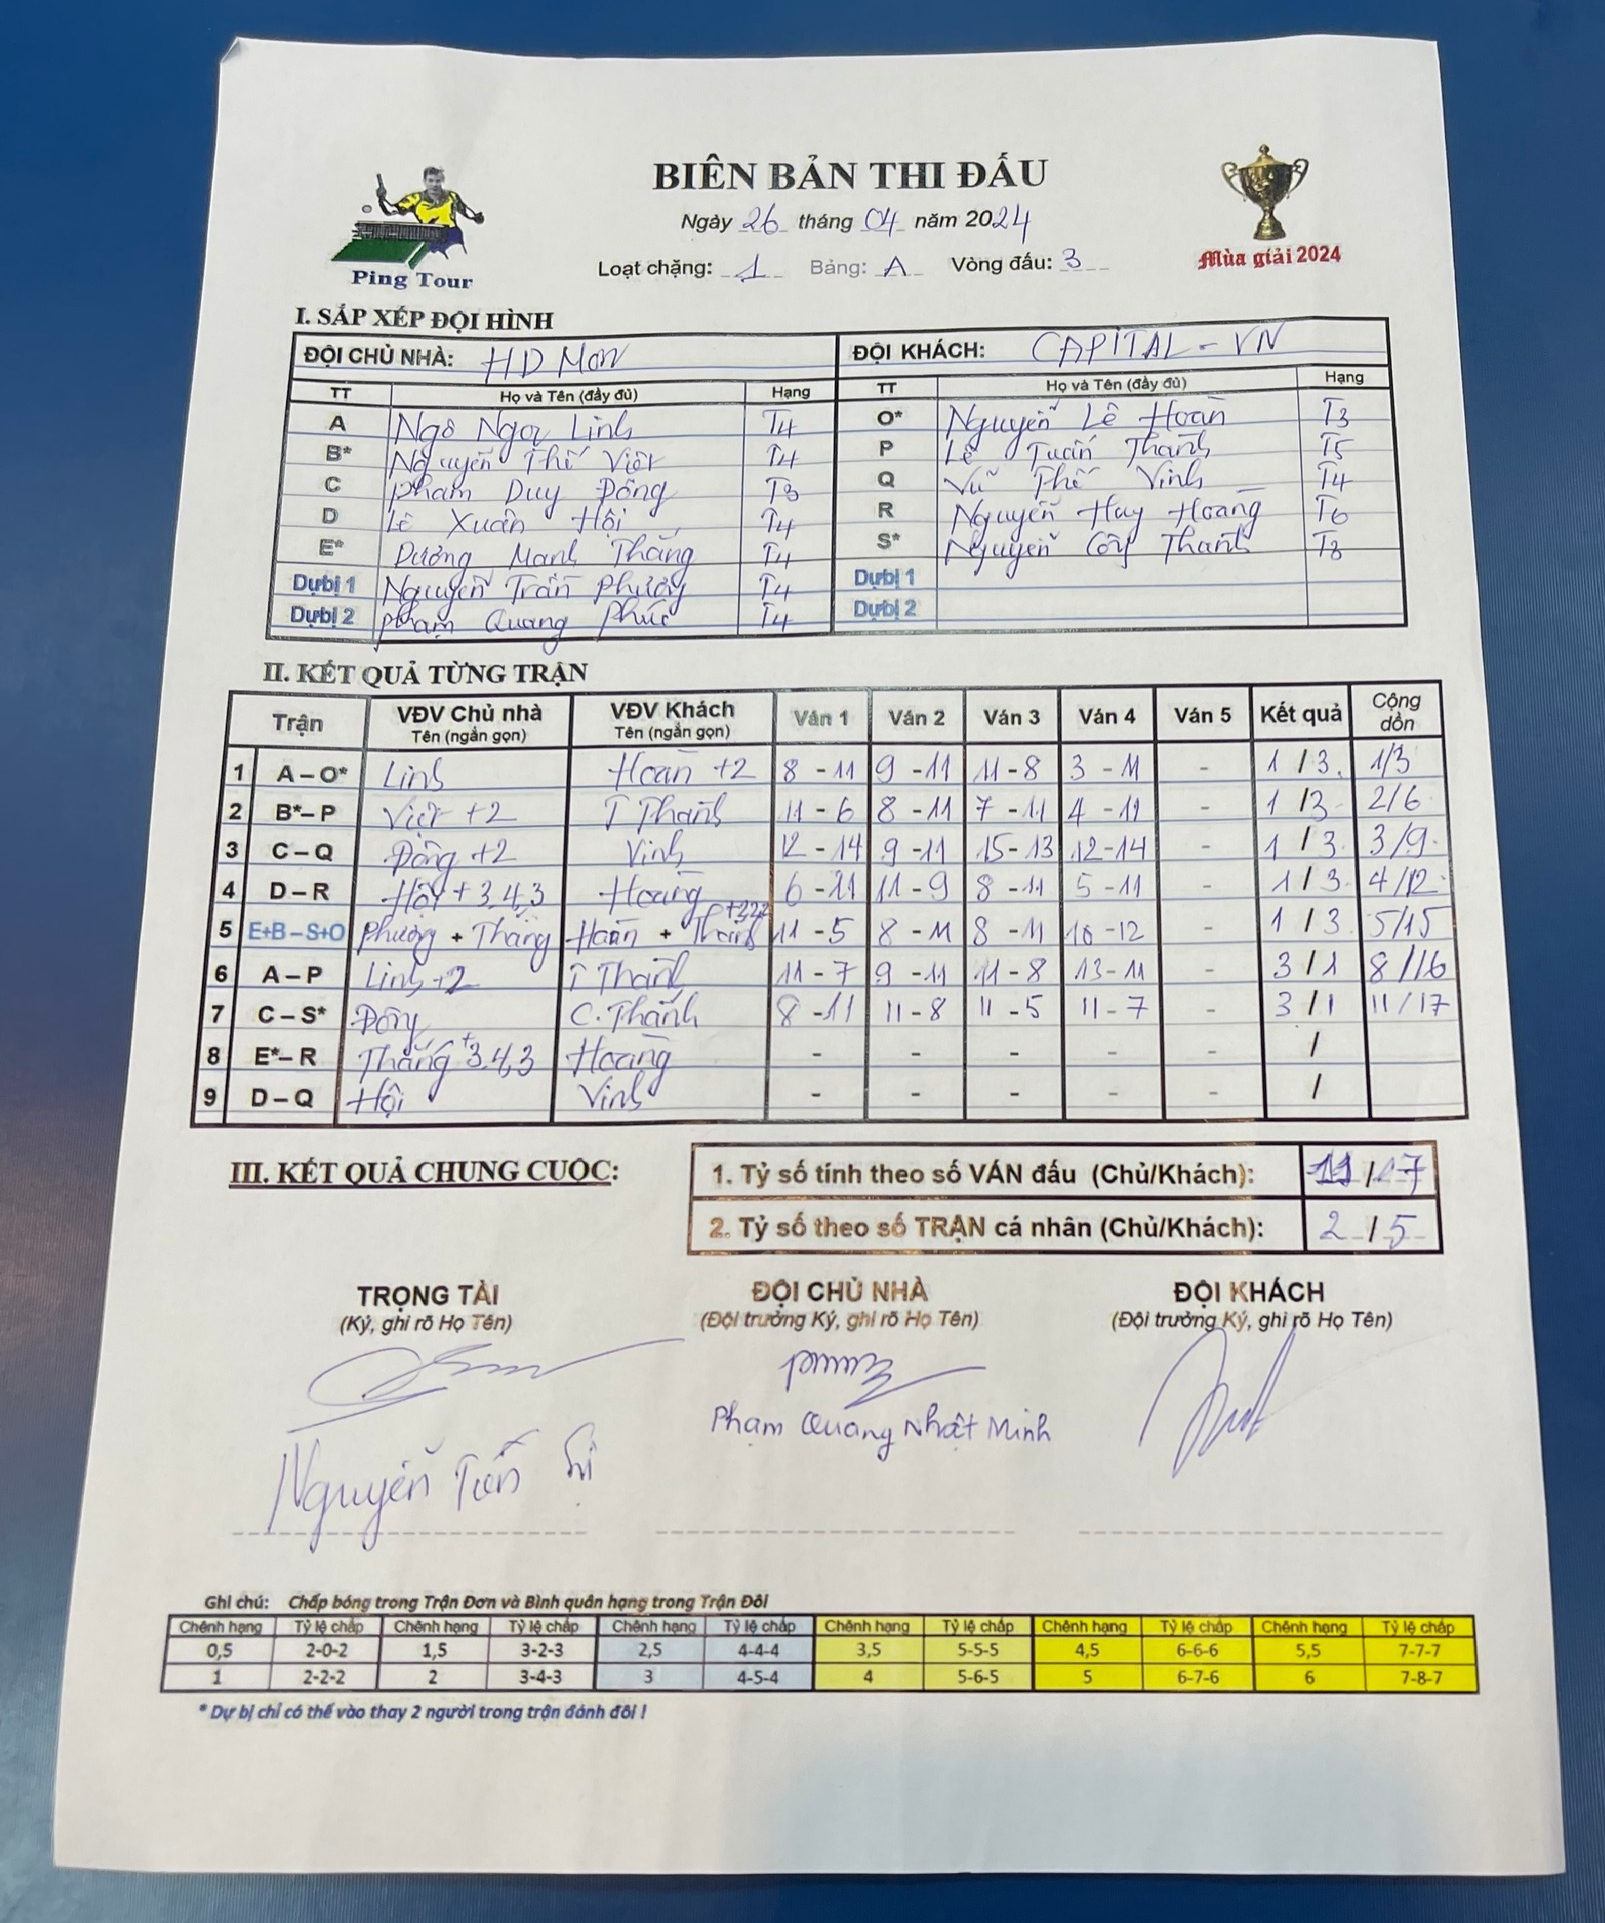 BIÊN BẢN THI ĐẤU
Ngày 26 tháng 04 năm 2024
Loạt chặng: 1 Bảng: A Vòng đấu: 3
Ping Tour
Mùa giải 2024
I. SẮP XẾP ĐỘI HÌNH
ĐỘI CHỦ NHÀ: HD Mon ĐỘI KHÁCH: CAPITAL - VN
TT Họ và Tên (đầy đủ) Hạng TT Họ và Tên (đầy đủ) Hạng
A Ngô Ngọc Linh T4 O* Nguyễn Lê Hoàn T3
B* Nguyễn Thế Việt T4 P Lê Tuấn Thành T5
C Phạm Duy Đông T3 Q Vũ Thế Vinh T4
D Lê Xuân Hội T4 R Nguyễn Huy Hoàng T6
E* Dương Mạnh Thắng T4 S* Nguyễn Công Thành T3
Dự bị 1 Nguyễn Trần Phương T4 Dự bị 1
Dự bị 2 Phạm Quang Phúc T4 Dự bị 2
II. KẾT QUẢ TỪNG TRẬN
Trận VĐV Chủ nhà Tên (ngắn gọn) VĐV Khách Tên (ngắn gọn) Ván 1 Ván 2 Ván 3 Ván 4 Ván 5 Kết quả Cộng dồn
1 A – O* Linh Hoàn +2 8 - 11 9 - 11 11 - 8 3 - 11 - 1 / 3 1/3
2 B* – P Việt +2 T Thành 11 - 6 8 - 11 7 - 11 4 - 11 - 1 / 3 2/6
3 C – Q Đông +2 Vinh 12 - 14 9 - 11 15 - 13 12 - 14 - 1 / 3 3/9
4 D – R Hội + 3,4,3 Hoàng 6 - 11 11 - 9 8 - 11 5 - 11 - 1 / 3 4/12
5 E+B – S+O Phương + Thắng Hoàn + Thành +322 11 - 5 8 - 11 8 - 11 10 - 12 - 1 / 3 5/15
6 A – P Linh +2 T Thành 11 - 7 9 - 11 11 - 8 13 - 11 - 3 / 1 8/16
7 C – S* Đông C. Thành 8 - 11 11 - 8 11 - 5 11 - 7 - 3 / 1 11/17
8 E* – R Thắng +3,4,3 Hoàng - - - - - /
9 D – Q Hội Vinh - - - - - /
III. KẾT QUẢ CHUNG CUỘC:
1. Tỷ số tính theo số VÁN đấu (Chủ/Khách): 11 / 17
2. Tỷ số theo số TRẬN cá nhân (Chủ/Khách): 2 / 5
TRỌNG TÀI ĐỘI CHỦ NHÀ ĐỘI KHÁCH
(Ký, ghi rõ Họ Tên) (Đội trưởng Ký, ghi rõ Họ Tên) (Đội trưởng Ký, ghi rõ Họ Tên)
Phạm Quang Nhật Minh
Nguyễn Tiến
Ghi chú: Chấp bóng trong Trận Đơn và Bình quân hạng trong Trận Đôi
Chênh hạng Tỷ lệ chấp Chênh hạng Tỷ lệ chấp Chênh hạng Tỷ lệ chấp Chênh hạng Tỷ lệ chấp Chênh hạng Tỷ lệ chấp Chênh hạng Tỷ lệ chấp
0,5 2-0-2 1,5 3-2-3 2,5 4-4-4 3,5 5-5-5 4,5 6-6-6 5,5 7-7-7
1 2-2-2 2 3-4-3 3 4-5-4 4 5-6-5 5 6-7-6 6 7-8-7
* Dự bị chỉ có thể vào thay 2 người trong trận đánh đôi !